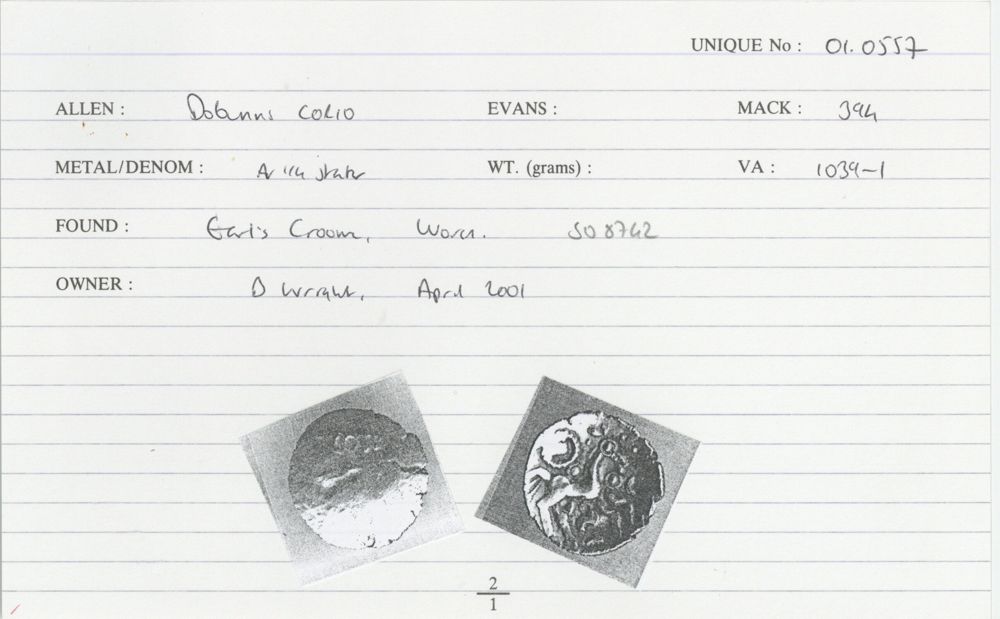 UNIQUE No : 01.0557
ALLEN : Dobunns CORIO EVANS : MACK : 394
METAL/DENOM : AV 1/4 stater WT. (grams) : VA : 1039-1
FOUND : Earl's Croome, Worcs. SO 8742
OWNER : D Wright, April 2001
2
1